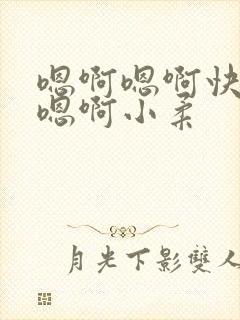 嗯啊嗯啊快
嗯啊小柔
月光下影雙人